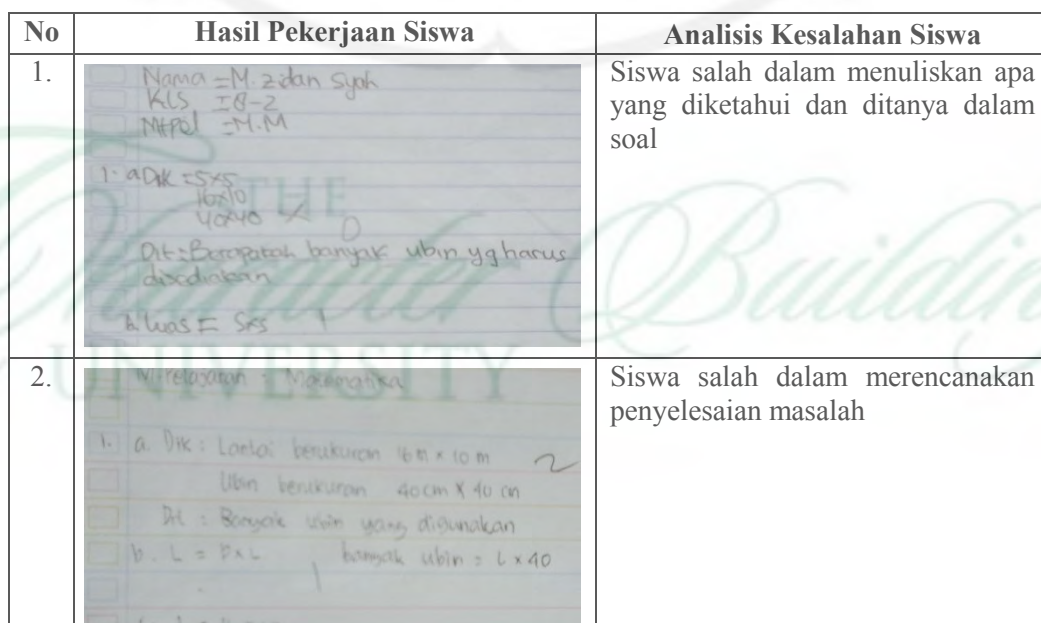 No Hasil Pekerjaan Siswa Analisis Kesalahan Siswa
1.
Nama = M. Zidan Syah
Kls = 8-2
= M.M
1. a Dik = 5x5
16x10
40x40
0
Dit : Berapakah banyak ubin yg harus
disediakan
b. Luas = 5x5 1
Siswa salah dalam menuliskan apa
yang diketahui dan ditanya dalam
soal
2.
M. Pelajaran : Matematika
1. a. Dik : Lantai berukuran 16 m x 10 m 2
Ubin berukuran 40 cm x 40 cm
Dit : Banyak ubin yang digunakan
b. L = P x L banyak ubin = L x 40
1
Siswa salah dalam merencanakan
penyelesaian masalah
THE
Character Buildin
UNIVERSITY